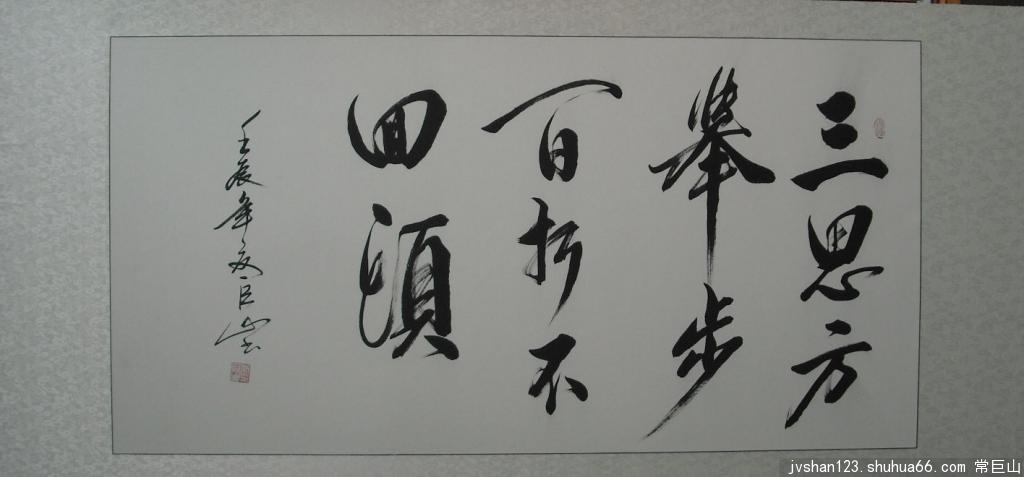 三思方
舉步
百折不
回頭
壬辰年夏巨山书
jvshan123.shuhua66.com 常巨山